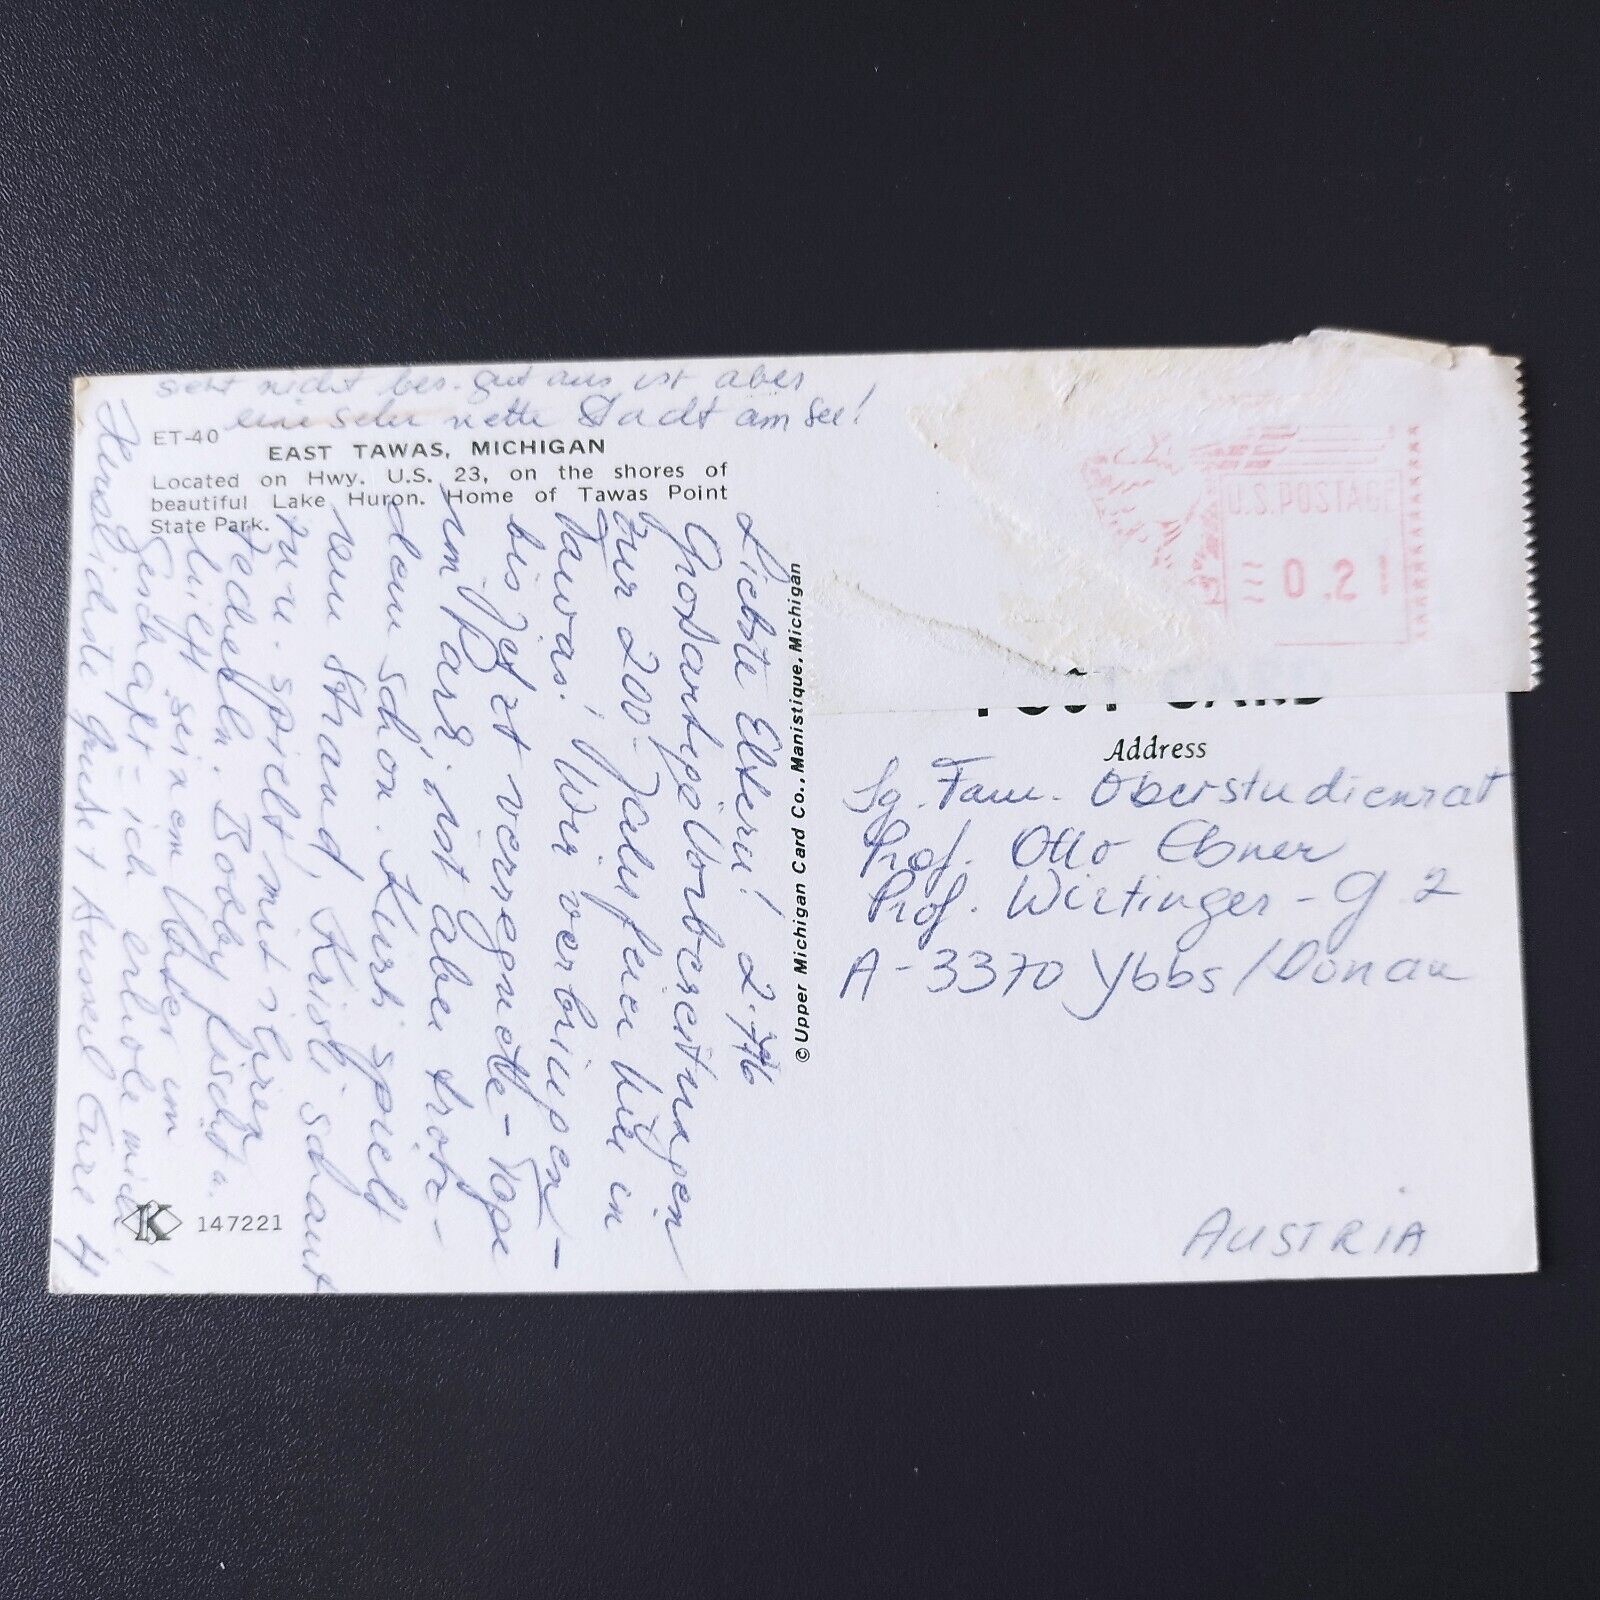 sieht nicht bes. gut aus ist aber
eine sehr nette Stadt am See!
ET-40
EAST TAWAS, MICHIGAN
Located on Hwy. U.S. 23, on the shores of
beautiful Lake Huron. Home of Tawas Point
State Park.
Liebste Eltern! 2.7.76
Großartige Vorbereitungen
zur 200-Jahrfeier hier in
Tawas! Wir verbringen
bis jetzt verregnete Tage
im Park, ist aber trotz-
dem schön. Kurti spielt
am Strand, Kristi schaut
zu u. spielt mit ihren
Bobby fischt u.
liest seinem Vater im
Gesch ich erhole mich!
Herzlichste Grüße + Busserl Eure 4
K 147221
© Upper Michigan Card Co., Manistique, Michigan
U.S. POSTAGE
0.2
POST CARD
Address
Sg. Fam. Oberstudienrat
Prof. Otto Ebner
Prof. Wirtinger-g. 2
A-3370 Ybbs/Donau
AUSTRIA